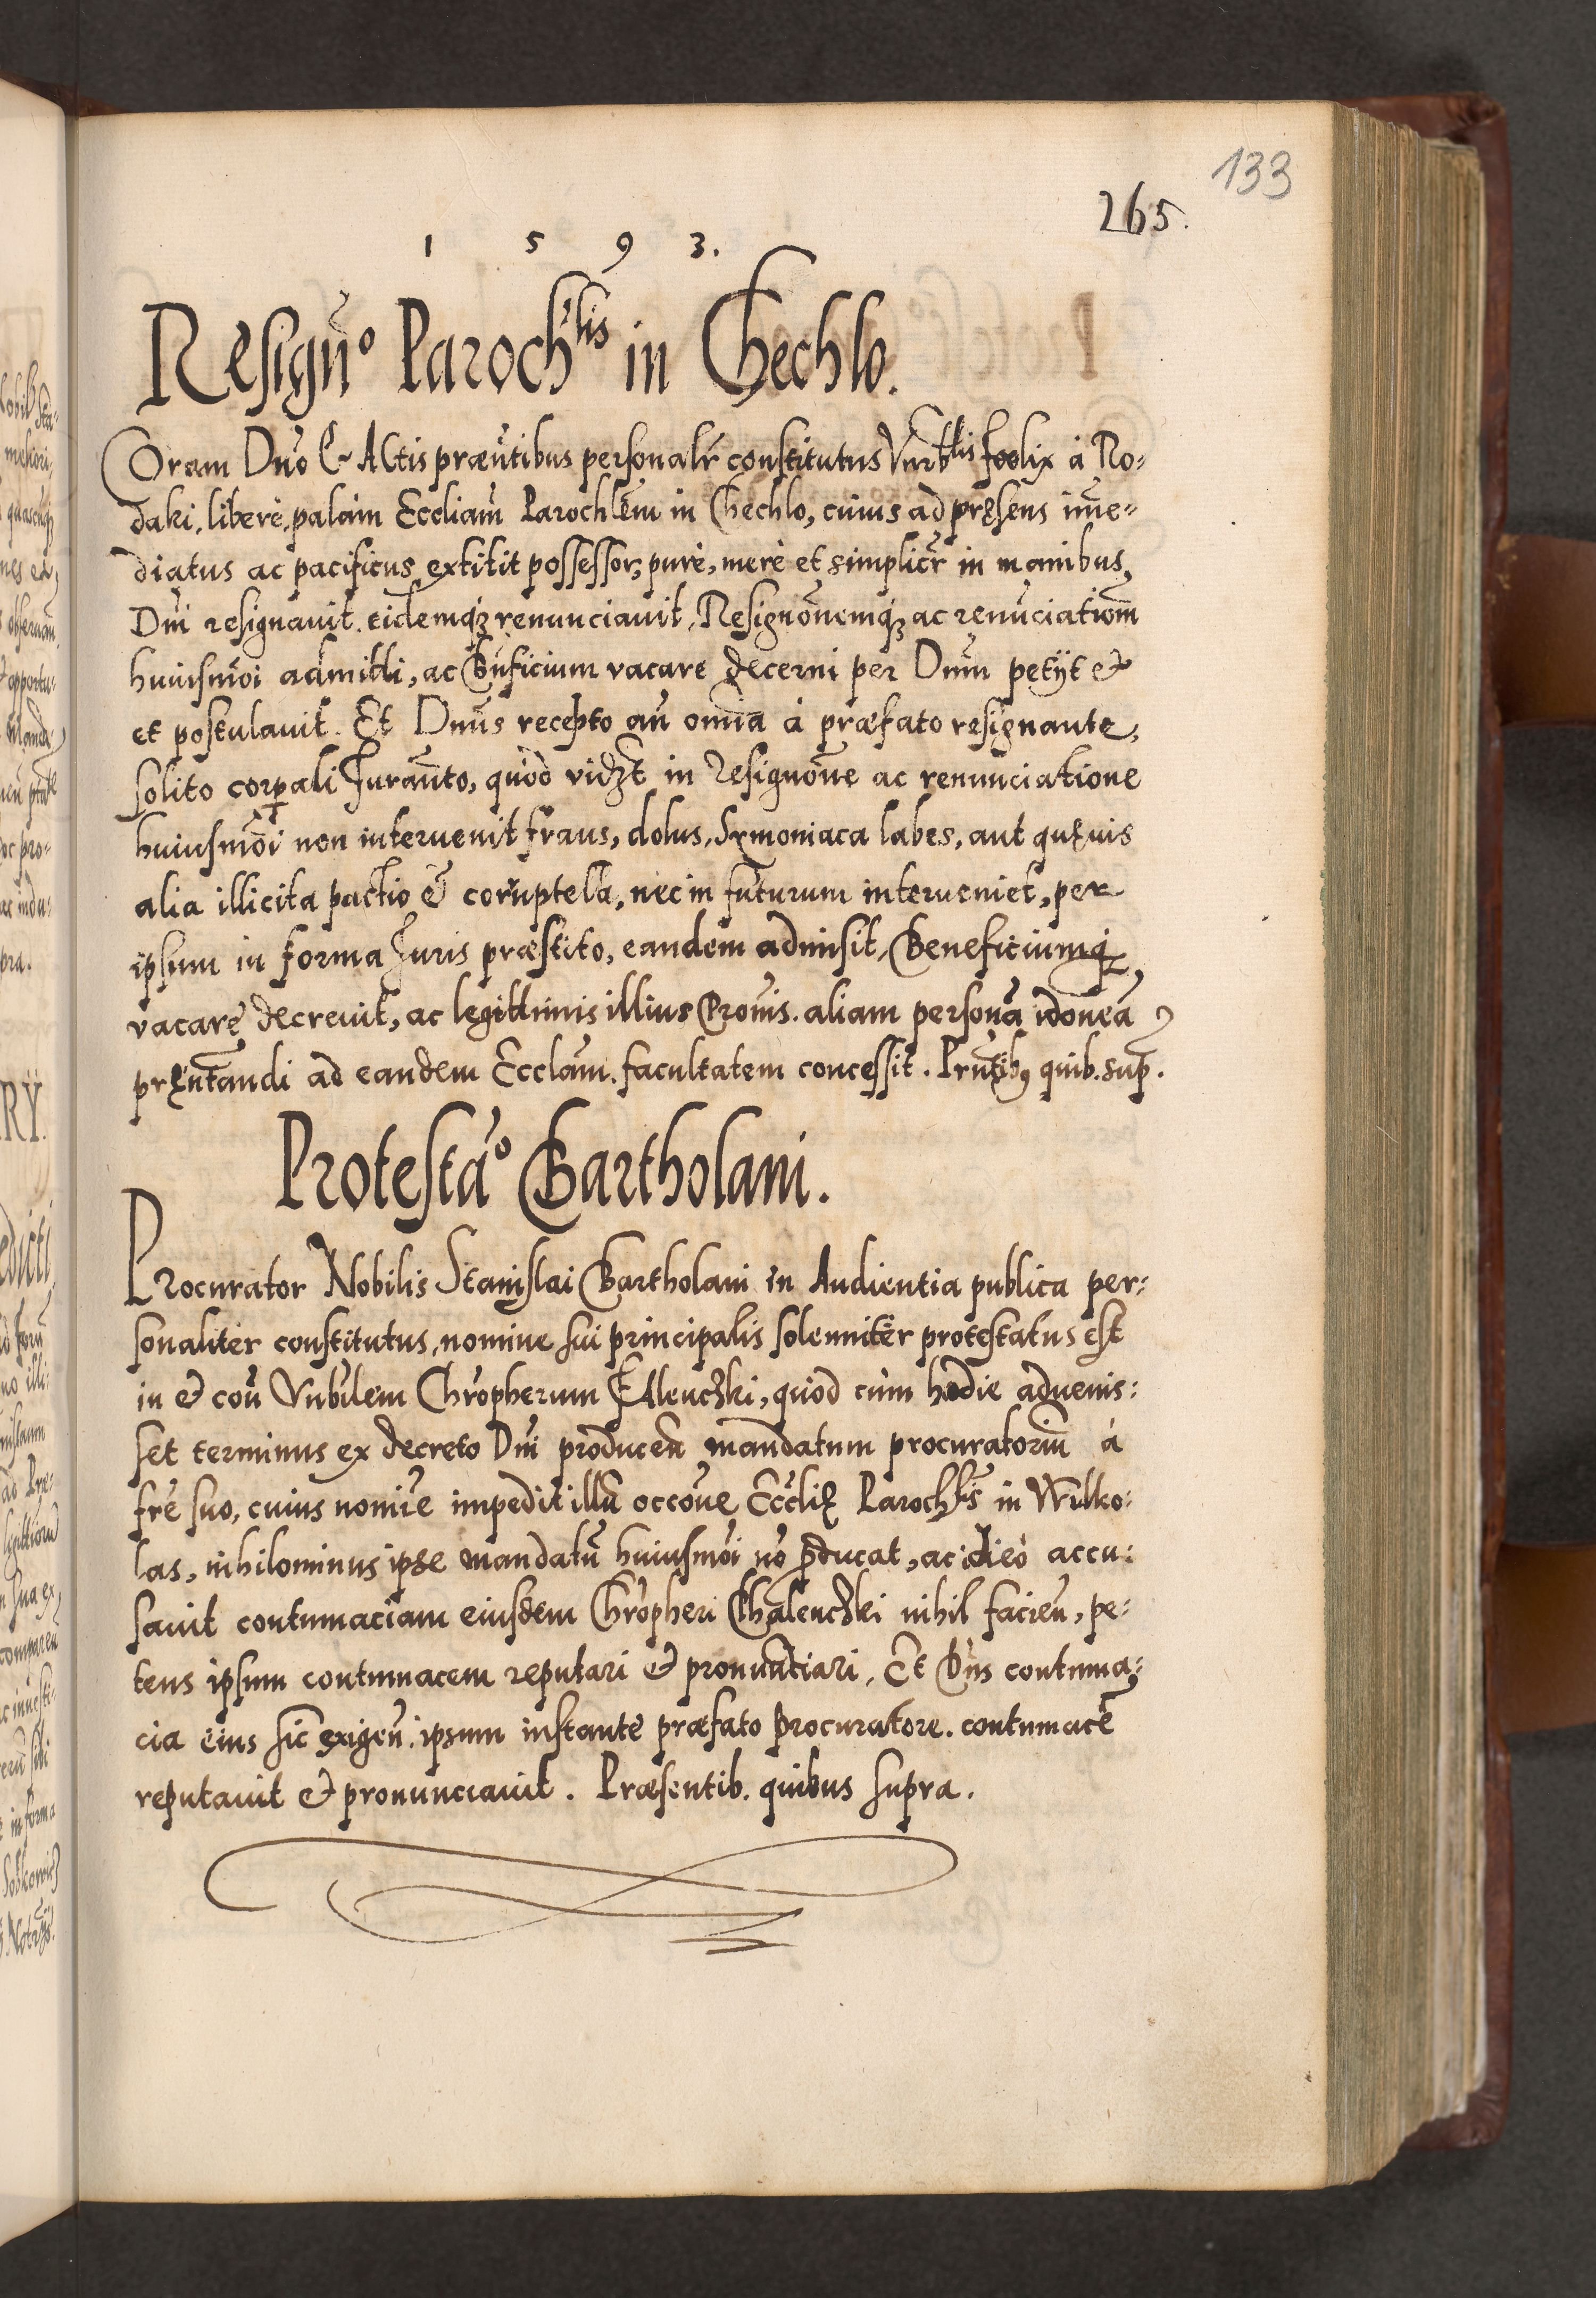 133
265.
1 5 9 3.
Resigñᵒ Parochˡⁱˢ in Chechlo.
Coram Dño & Actis præñtibus personalr̃ constitutus Vnrb̃lis Foelix à Ro-
daki, liberè, palàm Eccliam̃ Parochlẽm in Chechlo, cuius ad pręsens im̃e-
diatus ac pacificus extitit possessor, purè, merè et simplicr̃ in manibus
Dñi resignauit. eidemqꝫ renunciauit, Resignõnemqꝫ ac renũciatiom̃
huiusmõi admitti, ac Bñficium vacare decerni per Dñm petijt et
et postulauit. Et Dñus recepto añ omĩa à præfato resignante,
solito corꝑali Iurañto, quòd vidꝫt in Resignõne ac renunciatione
huiusmõi non interuenit fraus, dolus, Symoniaca labes, aut quęuis
alia illicita pactio & coruptela, nec in futurum interueniet, per
ipsum in forma Iuris præstito, eandem admisit, Beneficiumqꝫ
vacare decreuit, ac legittimis illius Pronis. aliam personã idoneã
pręñtandi ad eandem Ecclam̃. facultatem concessit. Prñtibꝰ quib. sup.
Protestãᵒ Bartholani.
Procurator Nobilis Stanislai Bartholani in Audientia publica per-
sonaliter constitutus, nomine sui principalis solenniter protestatus est
in & coñ Vnbilem Chrõpherum Chlenczki, quod cùm hodie aduenis-
set terminus ex decreto Dñi produceñ mandatum procuratoriũ à
frẽ suo, cuius nomine impedit illũ occõne Ecclię Parochlis̃ in Wilko-
las, nihilominus ipse mandatũ huiusmõi nõ ꝓducat, ac ideò accu-
sauit contumaciam eiusdem Chrõpheri Chalenczki nihil facieñ, pe-
tens ipsum contumacem reputari & pronunciari, Et Dñs contuma-
cia eius sic exigeñ. ipsum instante præfato procuratore. contumacẽ
reputauit & pronunciauit. Præsentib. quibus supra.